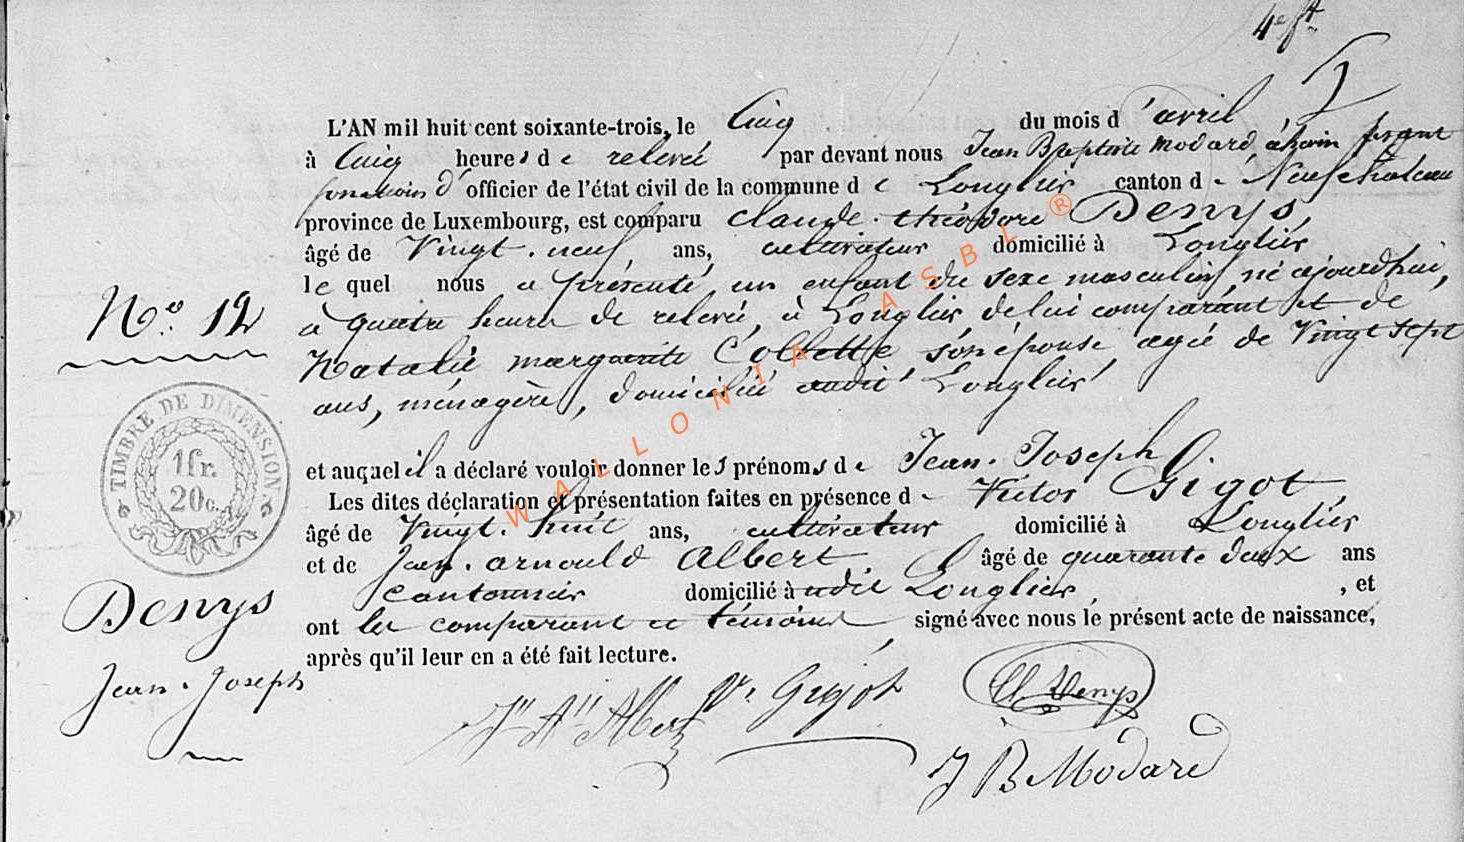 4e ft
L'AN mil huit cent soixante-trois, le Cinq du mois d'avril,
à Cinq heures de relevée par devant nous Jean Baptiste Modard échevin fesant
fonction d'officier de l'état civil de la commune de Longlier canton de Neufchateau
province de Luxembourg, est comparu Claude-théodore Denys,
âgé de Vingt-neuf ans, cultivateur domicilié à Longlier
le quel nous a présenté, un enfant du sexe masculin, né ajourdhui,
à quatre heure de relevée, à Longlier, de lui comparant et de
Natalie marguerite Collette son épouse, agée de Vingt sept
ans, ménagère, domiciliée audit Longlier
No. 12
TIMBRE DE DIMENSION.
1 fr.
20 c.
et auquel il a déclaré vouloir donner les prénoms de Jean-Joseph
Les dites déclaration et présentation faites en présence de Victor Gigot,
âgé de Vingt-huit ans, cultivateur domicilié à Longlier
et de Jean-arnould Albert âgé de quarante deux ans
Cantonnier domicilié à udit Longlier, et
ont les comparant et témoins signé avec nous le présent acte de naissance,
après qu'il leur en a été fait lecture.
Denys
Jean-Joseph
Jn An Albert
Vr. Gigot
Cl Denys
J B Modard
WALLONIA ASBL ®